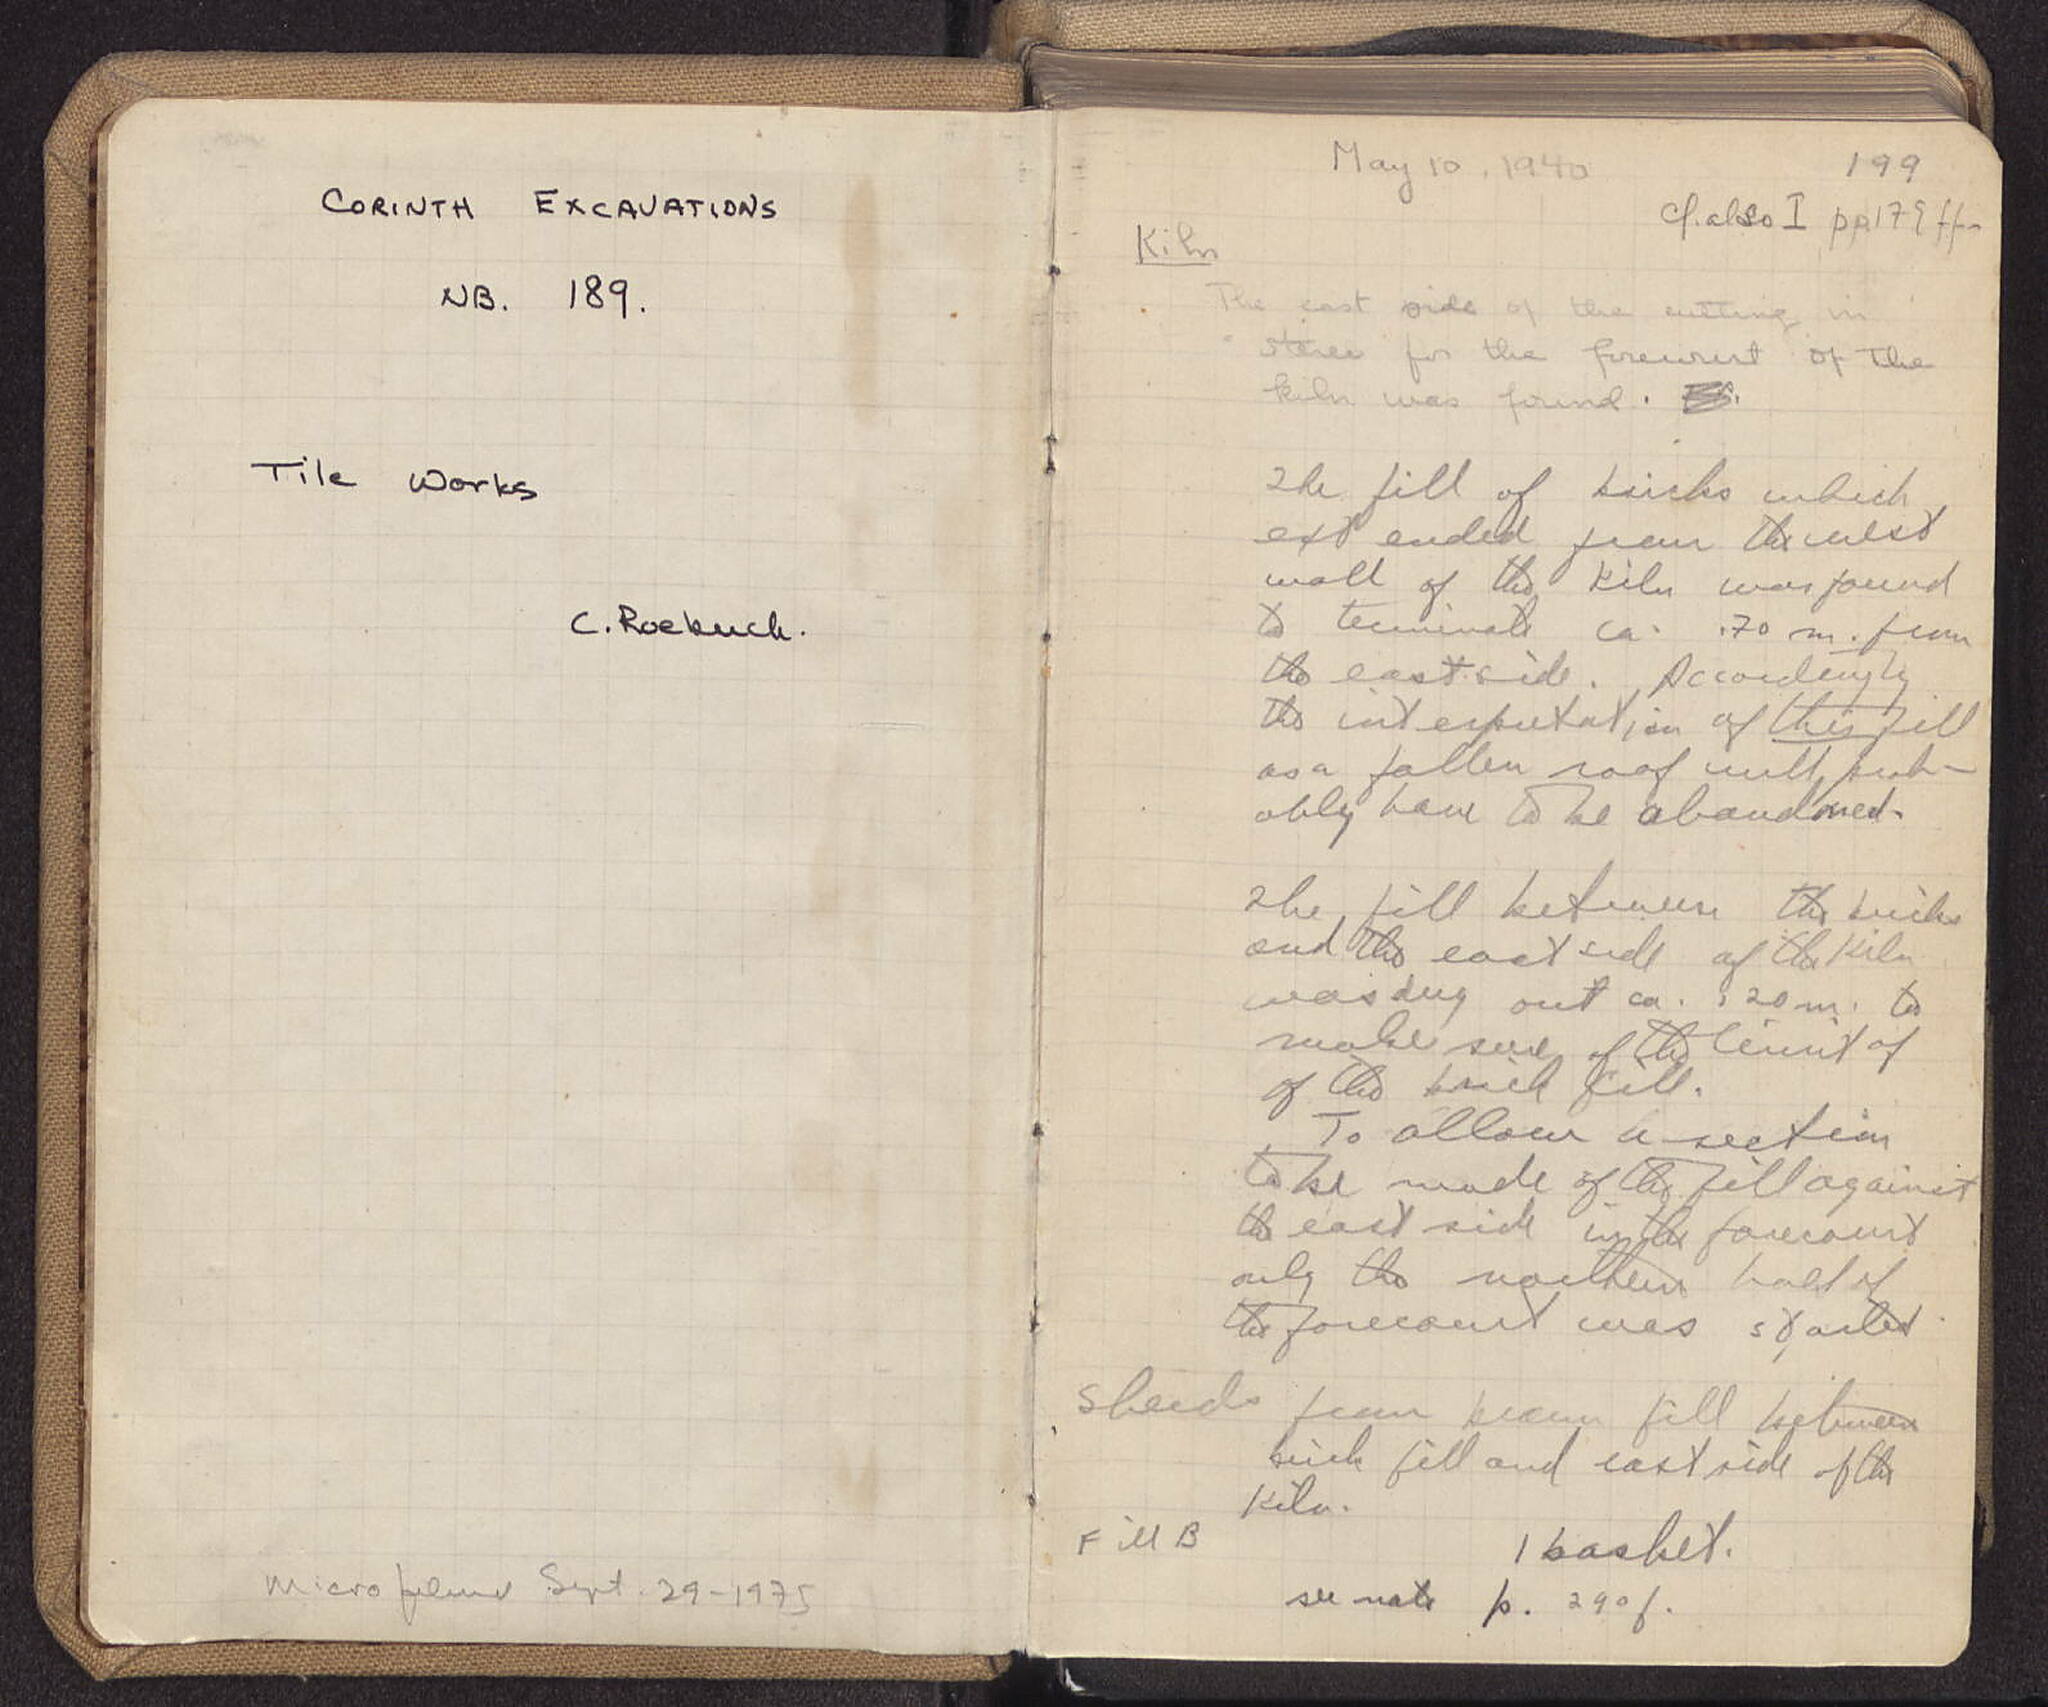 CORINTH EXCAVATIONS
NB. 189.
Tile Works
C. Roebuck.
Microfilmed Sept. 29-1975
May 10, 1940
199
cf. also I pp. 179 ff.
Kiln
The east side of the cutting in
stereo for the forecourt of the
kiln was found.
The fill of bricks which
extended from the west
wall of the kiln was found
to terminate ca. .70 m. from
the east side. Accordingly
the interpretation of this fill
as a fallen roof will prob-
ably have to be abandoned.
The fill between the bricks
and the east side of the kiln
was dug out ca. .20 m. to
make sure of the limit of
of the brick fill.
To allow a section
to be made of the fill against
the east side in the forecourt
only the northern half of
the forecourt was started
Sherds from brown fill between
brick fill and east side of the
kiln.
Fill B 1 basket.
see note p. 290 f.